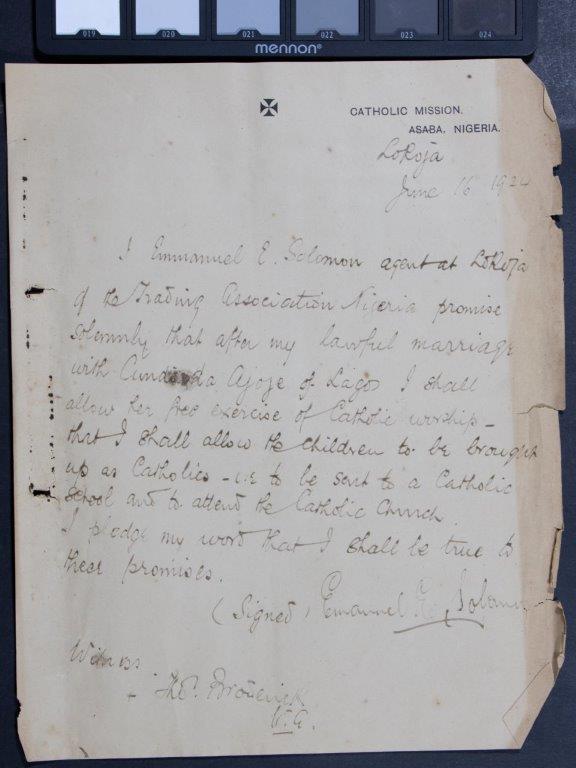 019 020 021 022 023 024
mennon®
CATHOLIC MISSION.
ASABA, NIGERIA.
Lokoja
June 16 1924
I Emmanuel E. Solomon agent at Lokoja
of the Trading Association Nigeria promise
solemnly that after my lawful marriage
with Ajoje of Lagos I shall
allow her free exercise of Catholic worship -
that I shall allow the children to be brought
up as Catholics - i.e to be sent to a Catholic
School and to attend the Catholic Church.
I pledge my word that I shall be true to
these promises.
(Signed) Emanuel E. Solomon
Witness
+ Thos. Broderick
V.A.